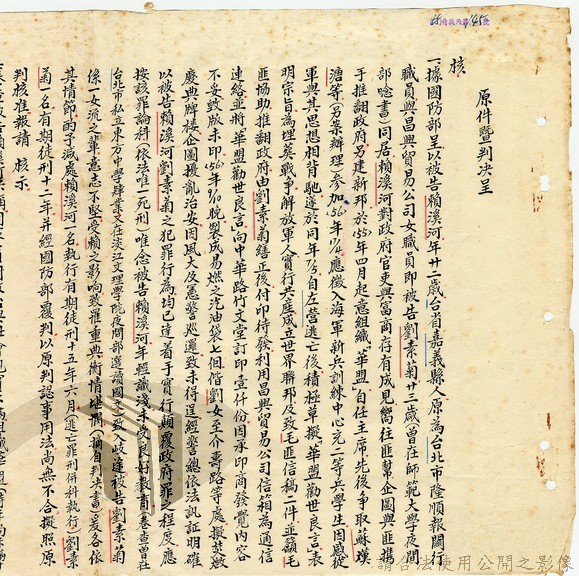 原件暨判决呈
核
一、據國防部呈以被告賴溪河年廿二歲台省嘉義縣人原為台北市隆順報關行
職員與昌興貿易公司女職員即被告劉素菊廿三歲(曾在師範大學夜間
部唸書)同居賴溪河對政府官吏與富商存有成見嚮往匪幫企圖與匪携
手推翻政府另建新邦於55年四月起意組織「華盟」自任主席先後爭取蘇漢
等(另案辦理)參加56年應徵入海軍新兵訓練中心充二等兵學生因感從
軍與其思想相背馳遂於同年自左營逃亡後積極草擬華盟勸世良言表
明宗旨為埋葬戰爭解放軍人實行共產成立世界聯邦及致毛匪信稿一件並籲毛
匪協助推翻政府由劉素菊繕正後付印待發利用昌興貿易公司信箱為通信
連絡並將華盟勸世良言向中華路竹文堂訂印壹仟份因承印商發覺內容
不妥致版未印56年晚製成易燃之汽油袋七個偕劉女至介壽路等處擬焚燬
慶典牌樓企圖擾亂治安因風大及憲警巡邏致未得逞經警總依法訊証明確
以被告賴溪河劉素菊之犯罪行為均已達着手實行顛覆政府罪之程度應
按該罪論科(依法唯一死刑)唯念被告賴溪河年輕識淺未受良好教育(卷查曾在
台北市私立東方中學肄業又在淡江文理學院夜間部選讀國文)致入歧途被告劉素菊
係一女流之輩意志不堅受賴之影響致罹重典衡情堪憫(摘自判决書)爰各依
其情節酌予減處賴溪河一名執行有期徒刑十五年六月(逃亡罪刑併科執行)劉素
菊一名有期徒刑十二年并經國防部覆判以原判認事用法尚無不合擬照原
判核准報請 核示
請合法使用公開之影像